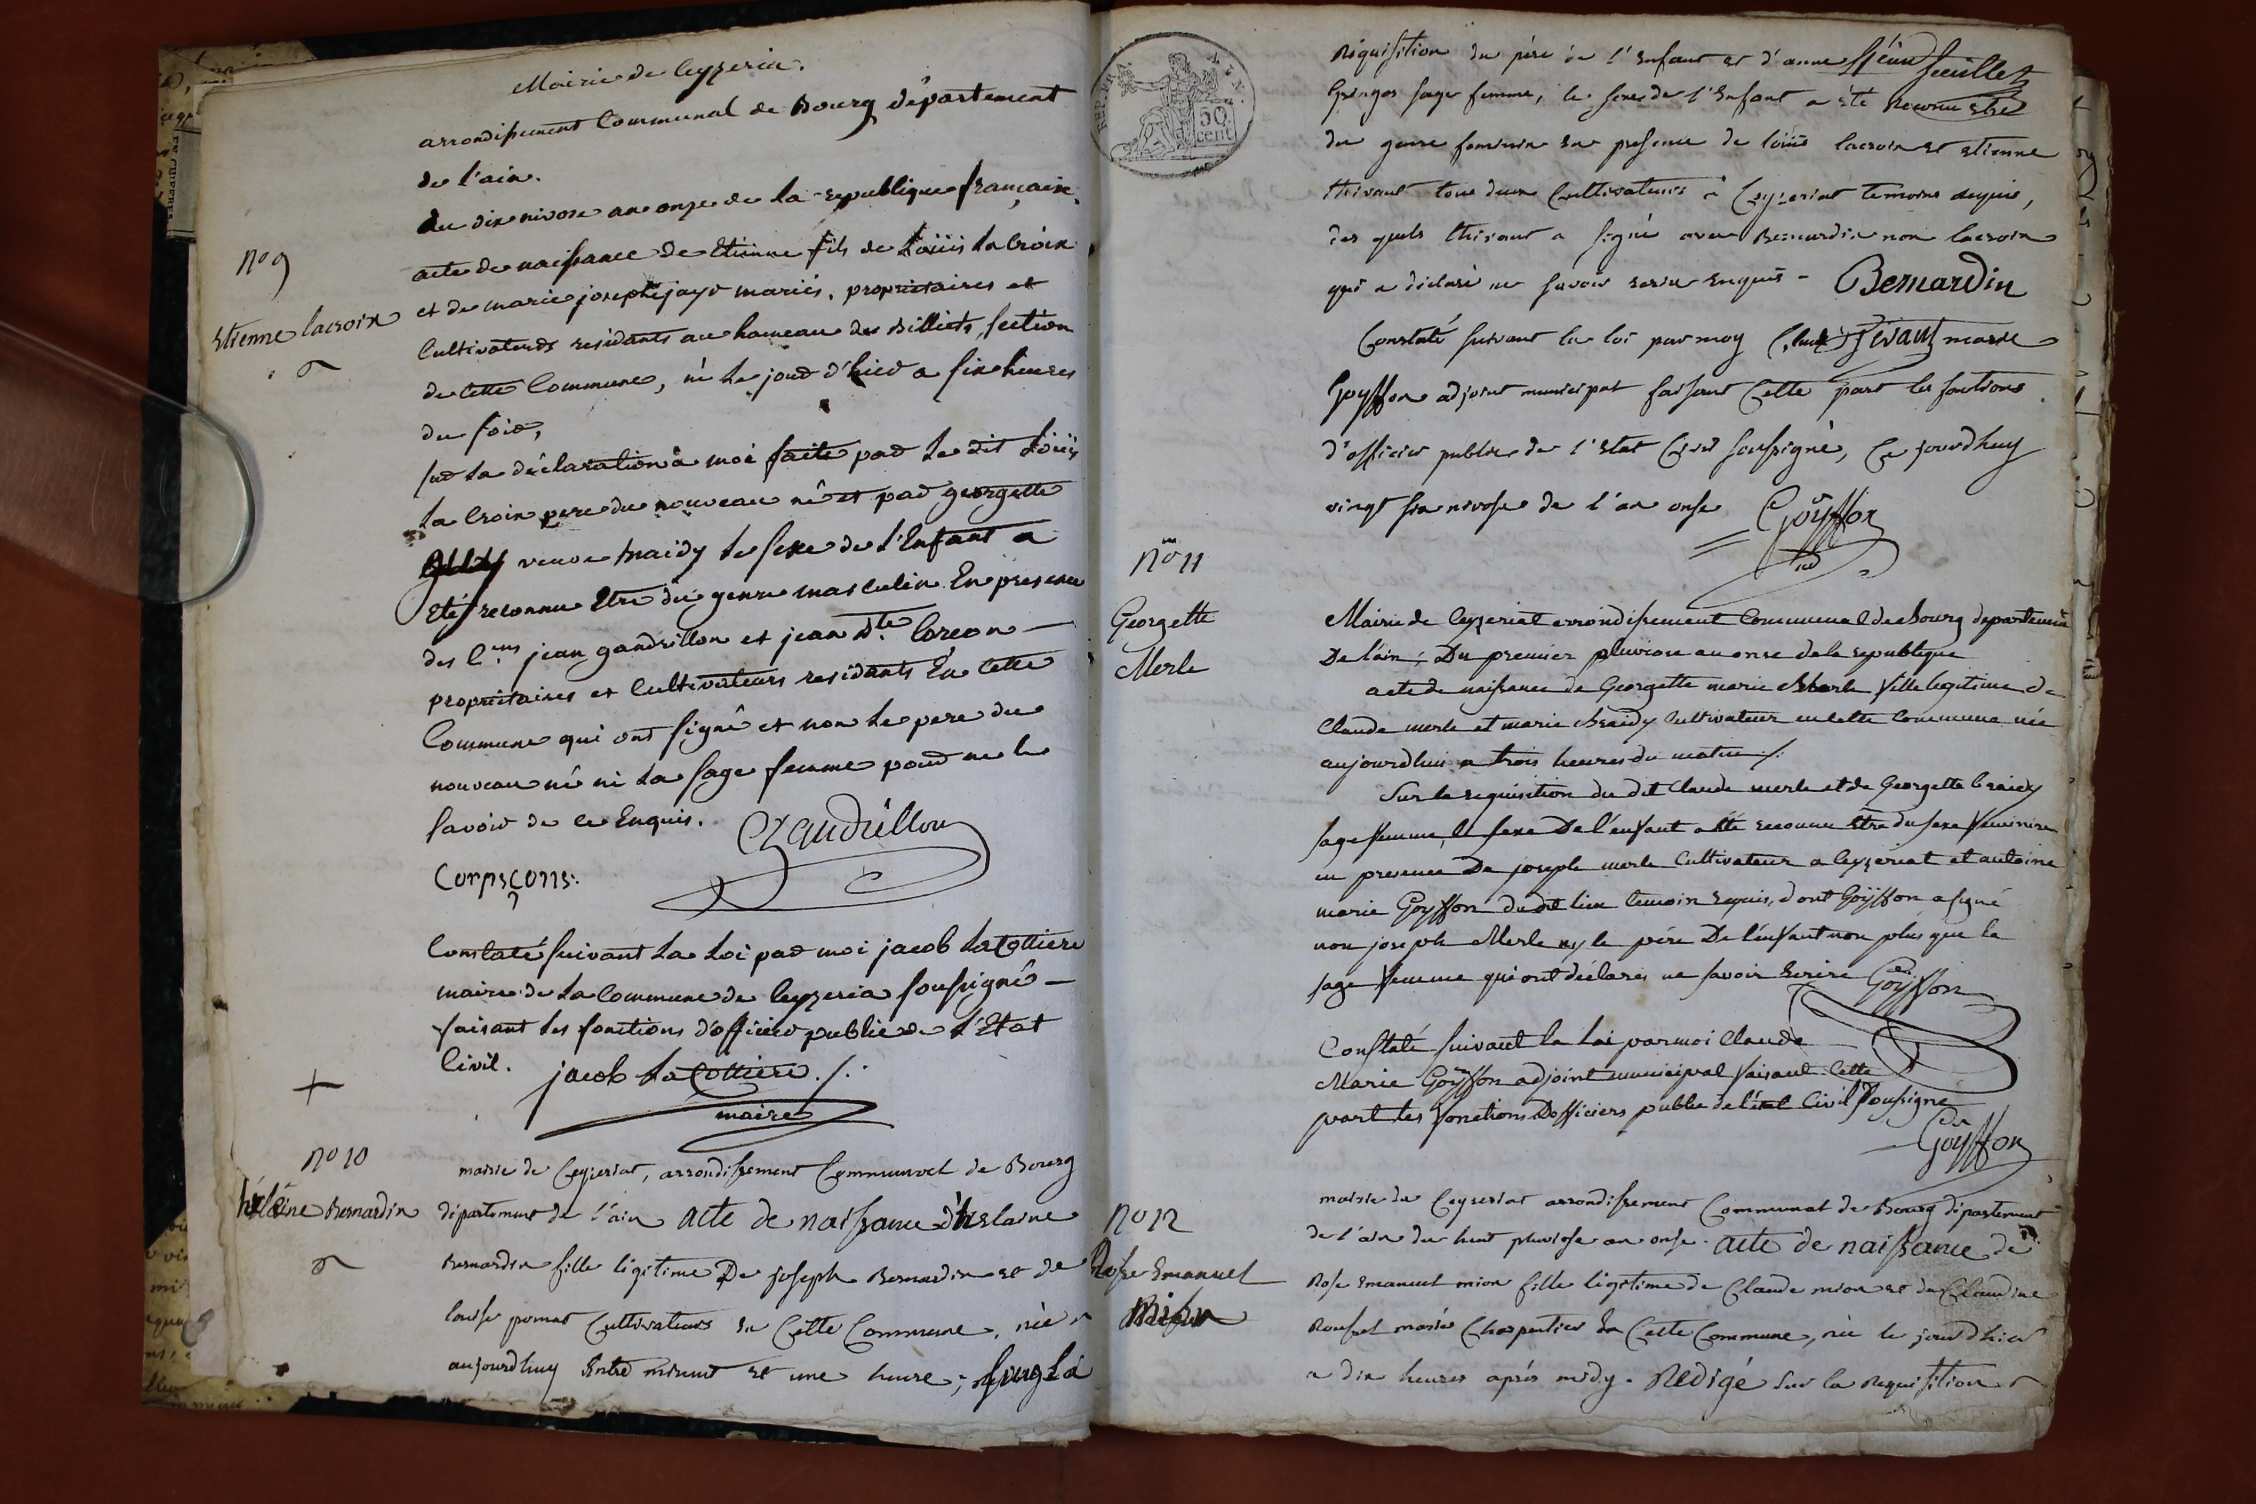 Mairie de Ceyzeria.
arrondissement Communal de Bourg département
de l'ain.
du dix nivose an onze de la republique française.
nº 9
acte de naissance de Etienne fils de Loüis la Croix
et de marie josephe jayr mariés, propriétaires et
Etienne lacroix
Cultivateurs residants au hameau des Billiets, section
de Cette Commune, né Le jour d'hier a six heures
du soir,
sur La déclaration à moi faite par Le dit Loüis
La Croix pere du nouveau né et par georgette
veuve braidy Le sexe de L'Enfant a
Eté reconnu Etre du genre masculin En presence
des C.ens jean gandrillon et jean B.te Corcon
propriétaires et Cultivateurs residants En Cette
Commune qui ont signé et non Le pere du
nouveau né ni La sage femme pour ne le
savoir de ce Enquis. Gaudrillon
Corpscons:
Constaté suivant La Loi par moi jacob LaCottiere
maire de La Commune de Ceyzeria soussigné
faisant Les fonctions d'officier public de L'Etat
Civil. jacob La Cottiere
maire
nº 10
mairie de Ceyzeriat, arrondissement Communal de Bourg
hélaine Bernardin
département de l'ain acte de naissance d'helaine
Bernardin fille légitime De joseph Bernardin et de
louise pomat Cultivateurs en Cette Commune, née
aujourdhuy Entre minuit et une heure; sur la
REP. FRA.
50
cent
réquisition du père de l'enfant et d'anne feuillet
sage femme, le sexe de l'Enfant a été reconnu etre
du genre feminin en presence de loüis lacroix et etienne
thivant tous deux Cultivateurs à Ceyzeriat temoins requis,
des quels thivant a signé avec Bernardin non lacroix
qui a déclaré ne savoir ecrire enquis - Bernardin
Constaté suivant la loi par moy Claude marie
Thivant
Goyffon adjoint municipal faisant Cette part les fonctions
d'officier public de l'Etat Civil soussigné, Ce jourdhuy
vingt six nivose de l'an onse Goÿffon
nº 11
Georgette
Merle
Mairie de Ceyzeriat arrondissement Communal de Bourg département
De l'ain; Du premier pluviose an onse de la republique
acte de naissance de Georgette marie Merle fille legitime de
Claude merle et marie Braidy Cultivateur en cette Commune née
aujourdhui a trois heures du matin ./.
Sur la requisition du dit Claude merle et de Georgette braidy
sage femme, le sexe De l'enfant a été reconnu Etre du sexe feminin
en presence De joseph merle Cultivateur a Ceyzeriat et antoine
marie Goÿffon dudit lieu temoin requis, dont Goÿffon a signé
non joseph Merle ny le père De l'enfant non plus que la
sage femme qui ont déclarés ne savoir Ecrire Goÿffon
Constaté suivant la Loi par moi Claude
Marie Goÿffon adjoint municipal faisant Cette
part les fonctions D'officiers public de l'état Civil soussigné
Goyffon
nº 12
mairie de Ceyzeriat arrondissement Communal de Bourg département
de l'ain du huit pluviose an onse. acte de naissance de
Rose Emanuel
mion
Rose Emanuel mion fille légitime de Claude mion et de Claudine
Rousset mariés Charpentier En Cette Commune, née le jour d'hier
a dix heures après midy. Redigé sur la requisition